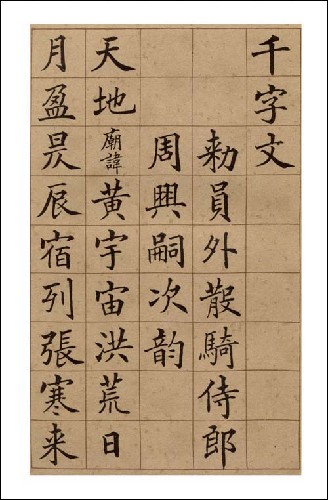 千字文
勑員外散騎侍郎
周興嗣次韵
天地廟諱黃宇宙洪荒日
月盈昃辰宿列張寒来